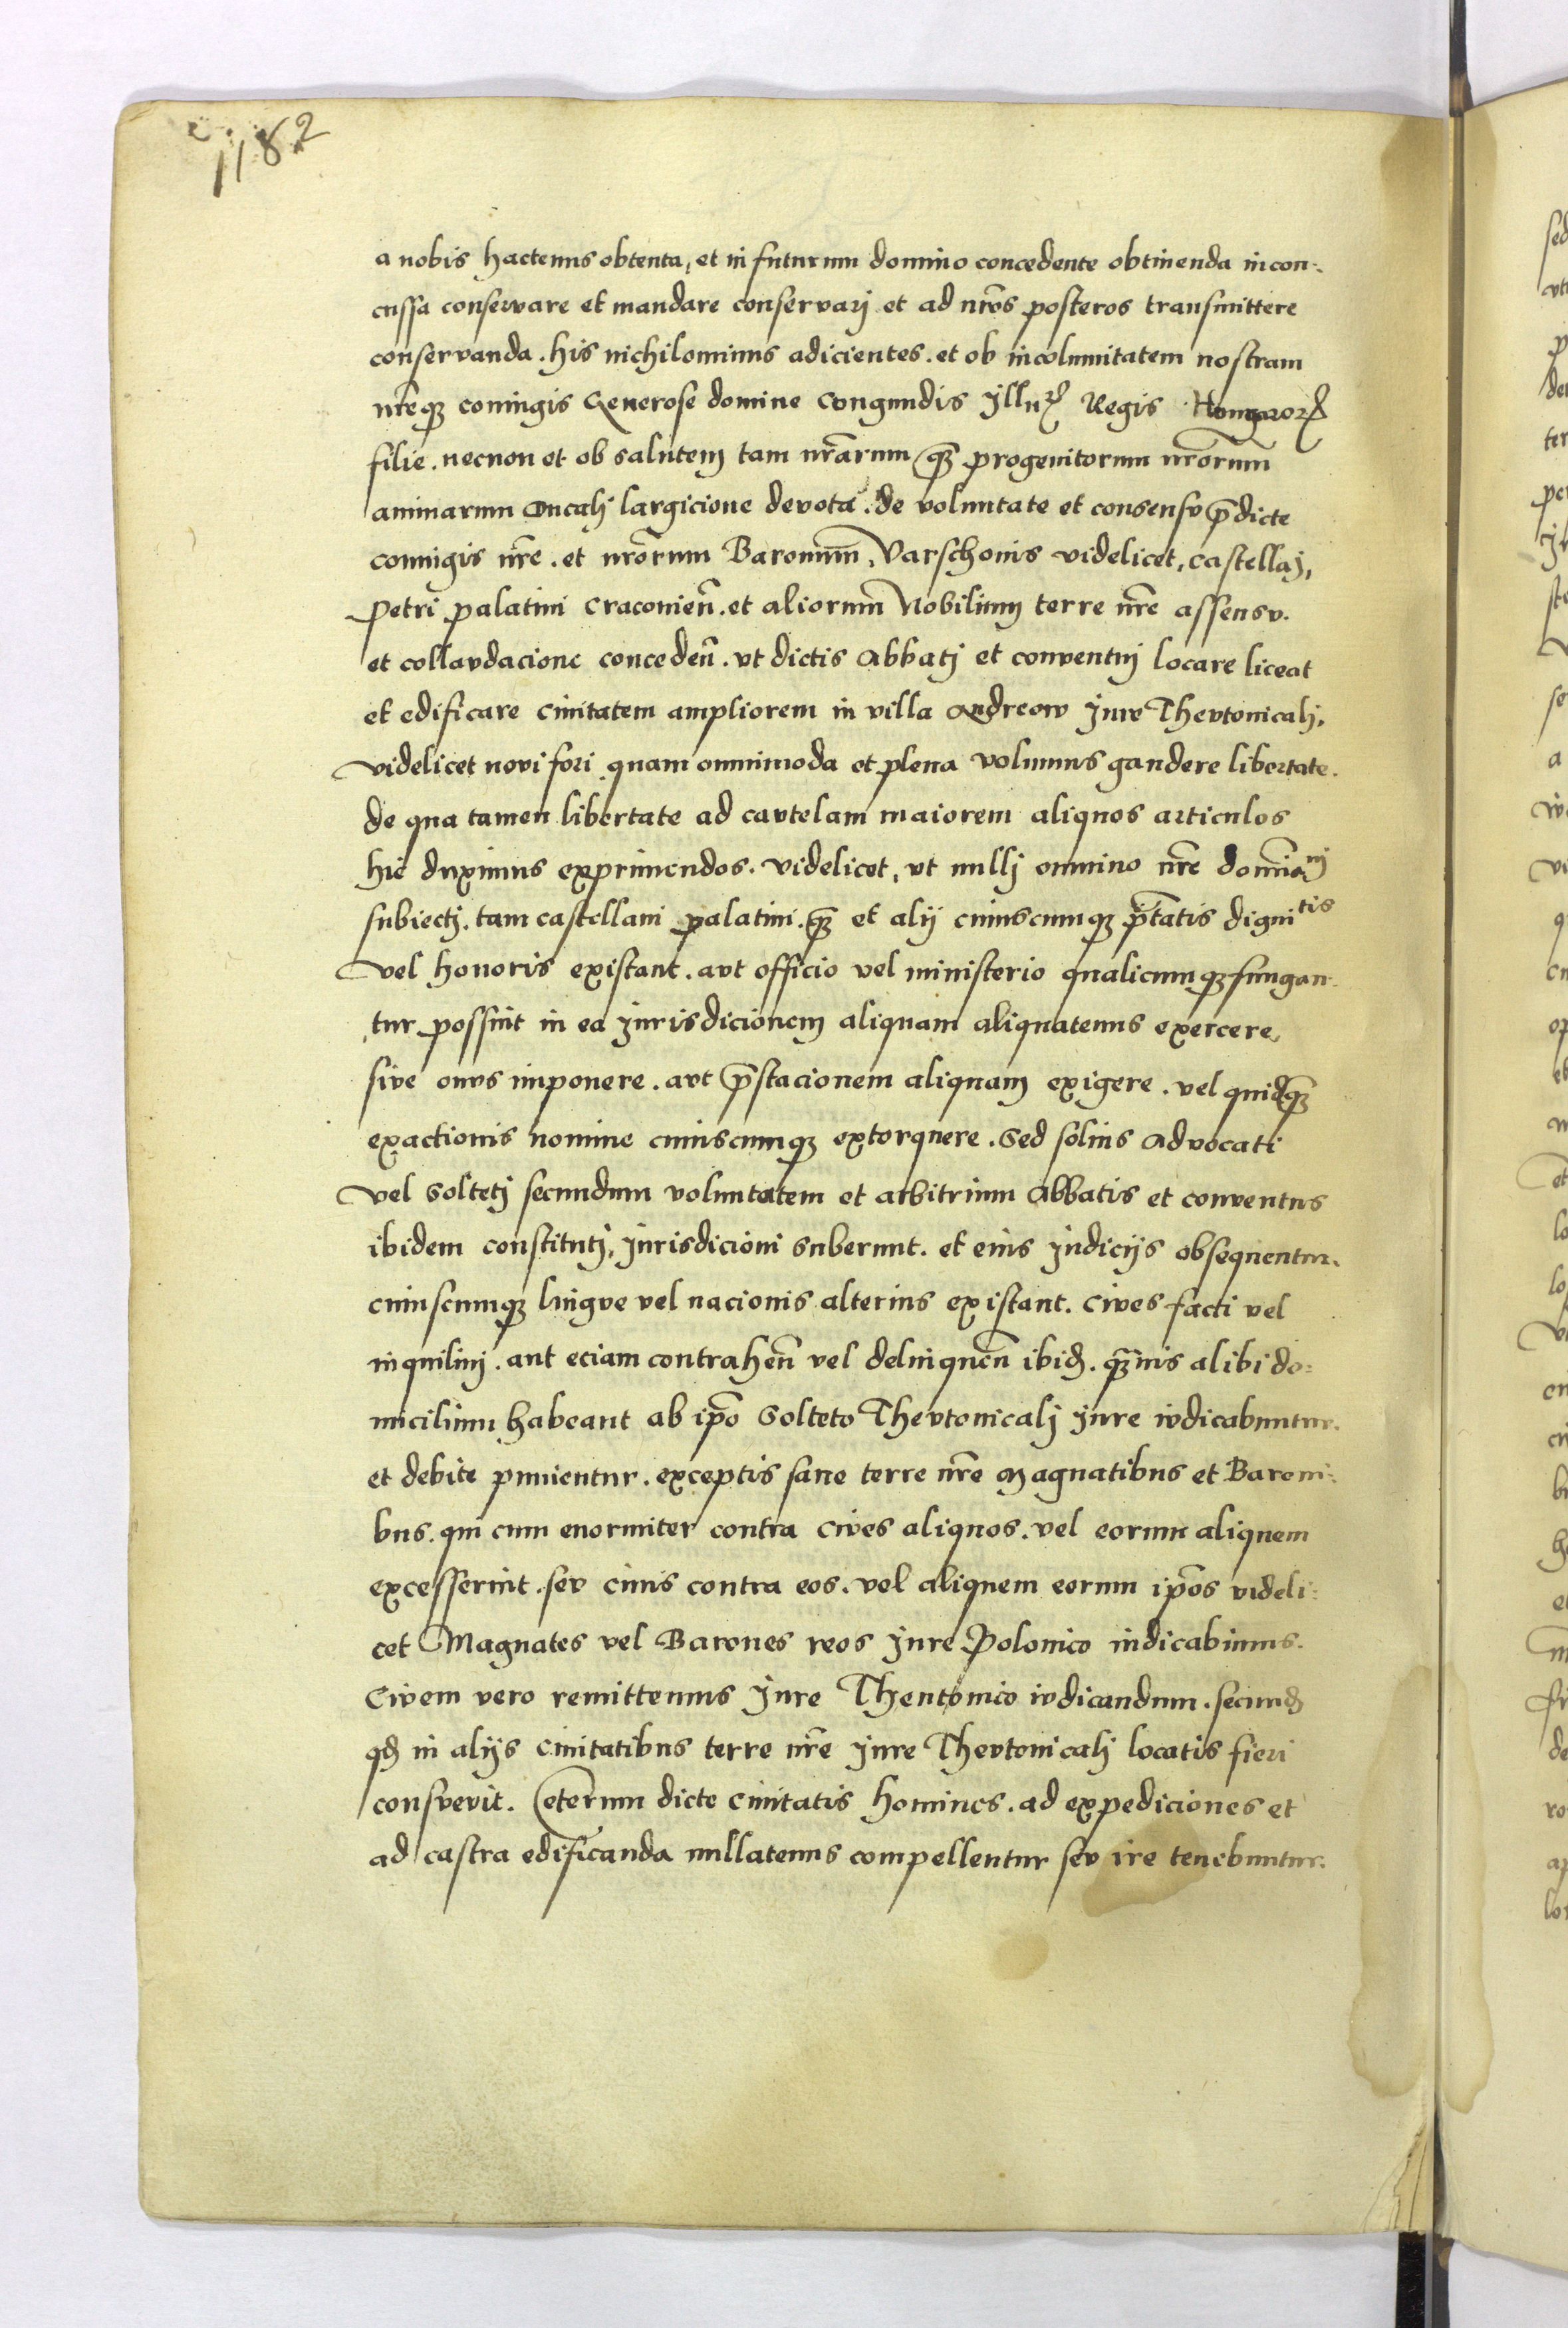 1182
a nobis hactenus obtenta, et in futurum domino concedente obtinenda incon-
cussa conservare et mandare conservarj et ad nr̄os posteros transmittere
conservanda. his nichilominus adicientes. et ob incolumitatem nostram
nr̄eqꝫ coniugis Generose domine Congundis Illuꝝ Regis Hongaroꝝ
filie. necnon et ob salutem tam nr̄arum qꝫ progenitorum nr̄orum
animarum ducalj largicione devota. de voluntate et consensv p̄dicte
coniugis nr̄e. et nr̄orum Baronum, Varschonis videlicet, castellaj,
petri palatini Craconien̄. et aliorum Nobilium terre nr̄e assensv.
et collavdacione conceden̄. vt dictis Abbatj et conventuj locare liceat
et edificare Ciuitatem ampliorem in villa Andreow Jure Thevtonicalj,
videlicet novi fori quam omnimoda et plena volumus gaudere libertate.
de qua tamen libertate ad cavtelam maiorem aliquos articulos
hic duximus exprimendos. videlicet, vt nullj omnino nr̄e domīanj
subiectj. tam castellani palatini. qꝫ et alij cuiuscumqꝫ p̄tatis dignitis
vel honoris existant. avt officio vel ministerio qualicumqꝫ fungan-
tur possint in ea Jurisdicionem aliquam aliquatenus exercere,
sive onvs imponere. avt p̄stacionem aliquam exigere. vel quidqꝫ
exactionis nomine cuiuscumqꝫ extorquere. Sed solius Advocati
vel Soltetj secundum voluntatem et arbitrium Abbatis et conventus
ibidem constitutj, Jurisdicioni suberunt. et eius Judicijs obsequentur.
cuiuscumqꝫ lingve vel nacionis alterius existant. Cives facti vel
inquilinj. aut eciam contrahen̄ vel delinquen̄ ibid̄. qꝫuis alibi do-
micilium habeant ab ip̄o Solteto Thevtonicalj Jure ivdicabuntur.
et debite punientur. exceptis sane terre nr̄e Magnatibus et Baroni-
bus. qui cum enormiter contra Cives aliquos. vel eorum aliquem
excesserint. sev Ciuis contra eos. vel aliquem eorum ip̄os videli-
cet Magnates vel Barones reos Jure Polonico iudicabimus.
Civem vero remittemus Jure Theutonico ivdicandum. secund̄
qd̄ in alijs Ciuitatibus terre nr̄e Jure Thevtonicalj locatis fieri
consvevit. Ceterum dicte Ciuitatis homines. ad expediciones et
ad castra edificanda nullatenus compellentur sev ire tenebuntur.